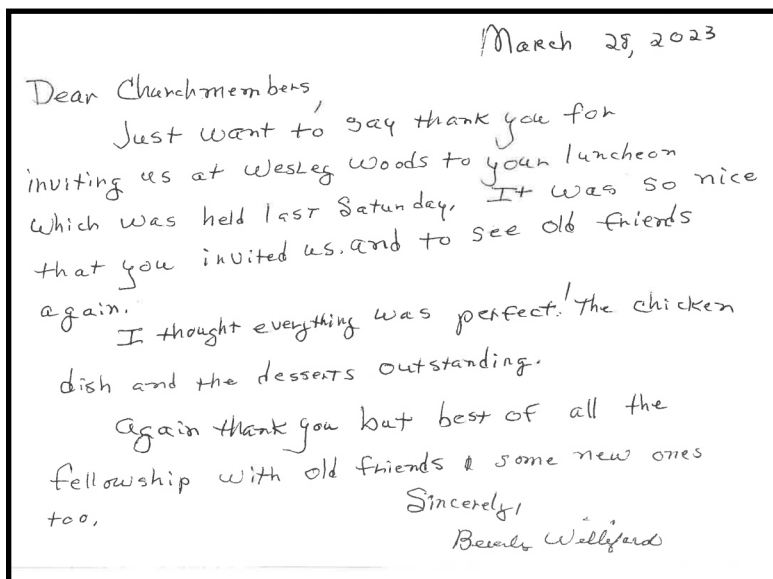 March 28, 2023
Dear Churchmembers,
Just want to say thank you for
inviting us at Wesley Woods to your luncheon
which was held last Saturday. It was so nice
that you invited us. and to see old friends
again.
I thought everything was perfect! The chicken
dish and the desserts outstanding.
Again thank you but best of all the
fellowship with old friends & some new ones
too.
Sincerely,
Beverly Williford